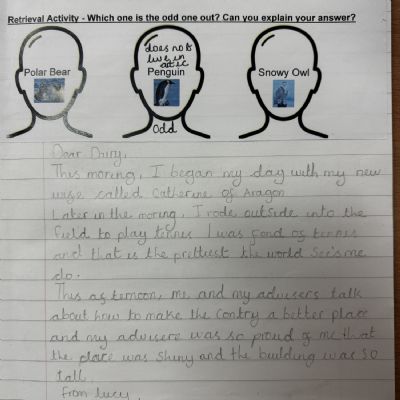 Retrieval Activity - Which one is the odd one out? Can you explain your answer?
does not
live in
artic
Polar Bear
Penguin
Snowy Owl
Odd
Dear Dairy,
This moring, I began my day with my new
wife called Catherine of Aragon
Later in the moring, I rode outside into the
field to play tennis I was fond of tennis
and that is the prettiest the world see's me
do.
This afternoon, me and my advisers talk
about how to make the Contry a better place
and my advisere was so proud of me that
the place was shiny and the building was so
tall.
from lucy,